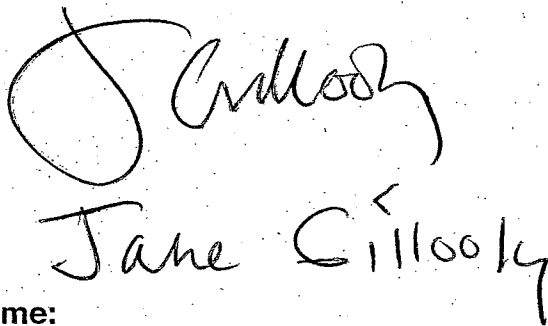 J Gillooly
Jane Gillooly
me: